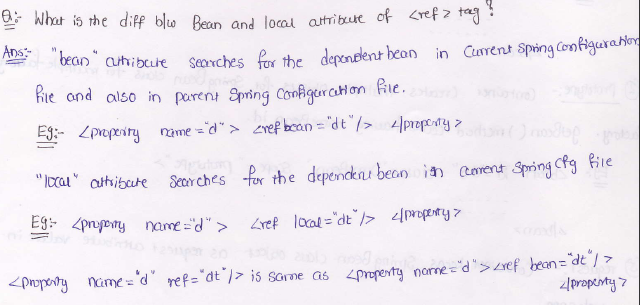 Q:- What is the diff b/w Bean and local attribute of <ref> tag?
Ans:- "bean" attribute searches for the dependent bean in Current Spring Configuration
file and also in parent Spring Configuration File.
Eg:- <property name="d"> <ref bean="dt"/> </property>
"local" attribute searches for the dependent bean in current Spring Cfg file
Eg:- <property name="d"> <ref local="dt"/> </property>
<property name="d" ref="dt"/> is same as <property name="d"><ref bean="dt"/>
</property>